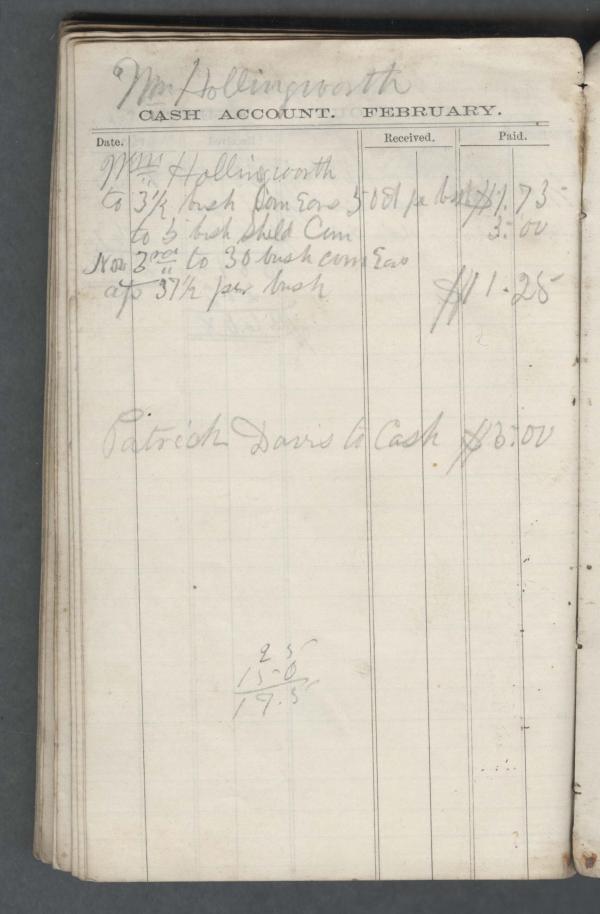 Wm Hollingworth
CASH ACCOUNT. FEBRUARY.
Date. Received. Paid.
Wm Hollingworth
to 3½ bush Corn Ears 50 ct pe bush $1.75
to 5 bush sheld Corn 3.00
Nov 3rd to 30 bush corn Ears
at 37½ per bush $11.25
Patrick Davis to Cash $5.00
25
150
17.5